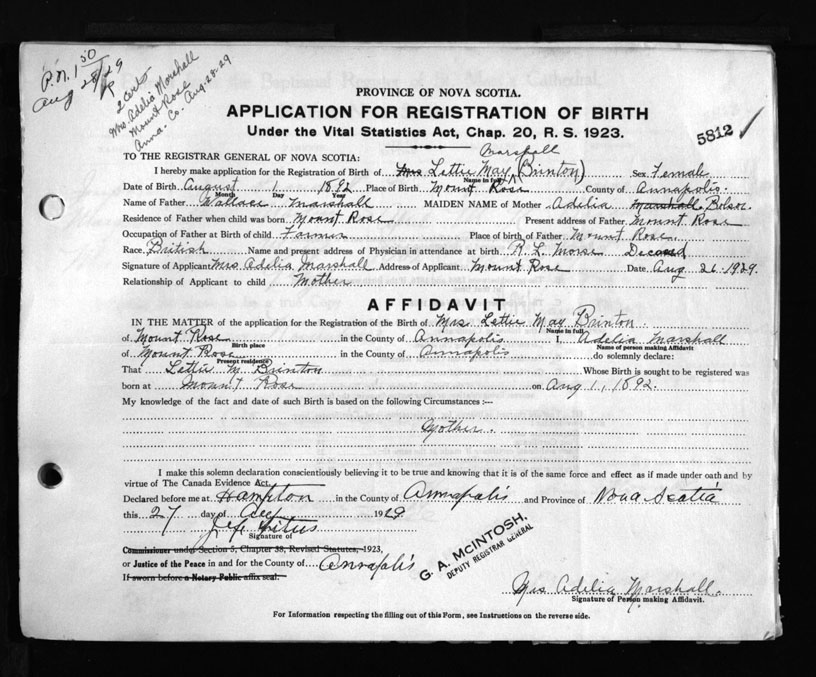 P.N. 1 50
Aug 28/29
2 certs
Mrs. Adelia Marshall
Mount Rose
Anna. Co. Aug. 28-29
PROVINCE OF NOVA SCOTIA.
APPLICATION FOR REGISTRATION OF BIRTH
Under the Vital Statistics Act, Chap. 20, R. S. 1923.
5812
TO THE REGISTRAR GENERAL OF NOVA SCOTIA:
Marshall
I hereby make application for the Registration of Birth of Mrs Lettie May (Brinton) Sex Female
Name in full
Date of Birth August 1 1892 Place of Birth Mount Rose County of Annapolis.
Month Year
Name of Father Wallace Marshall MAIDEN NAME of Mother Adelia Marshall
Residence of Father when child was born Mount Rose Present address of Father Mount Rose
Occupation of Father at Birth of child Farmer Place of birth of Father Mount Rose
Race British Name and present address of Physician in attendance at birth R. L. Morse
Signature of Applicant Mrs Adelia Marshall Address of Applicant Mount Rose Date Aug 26 1929.
Relationship of Applicant to child Mother
AFFIDAVIT
IN THE MATTER of the application for the Registration of the Birth of Mrs. Lettie May Brinton
Name in full
of Mount Rose in the County of Annapolis I, Adelia Marshall
Birth place Name of person making Affidavit
of Mount Rose in the County of Annapolis do solemnly declare:
Present residence
That Lettie M. Brinton Whose Birth is sought to be registered was
born at Mount Rose on Aug 1, 1892.
My knowledge of the fact and date of such Birth is based on the following Circumstances :—
Mother.
I make this solemn declaration conscientiously believing it to be true and knowing that it is of the same force and effect as if made under oath and by
virtue of The Canada Evidence Act,
Declared before me at Hampton in the County of Annapolis and Province of Nova Scotia
this 27 day of Aug 1929
Signature of
Commissioner under Section 5, Chapter 38, Revised Statutes, 1923,
or Justice of the Peace in and for the County of Annapolis
If sworn before a Notary Public affix seal.
G. A. McINTOSH,
DEPUTY REGISTRAR GENERAL
Mrs Adelia Marshall.
Signature of Person making Affidavit.
For Information respecting the filling out of this Form, see Instructions on the reverse side.